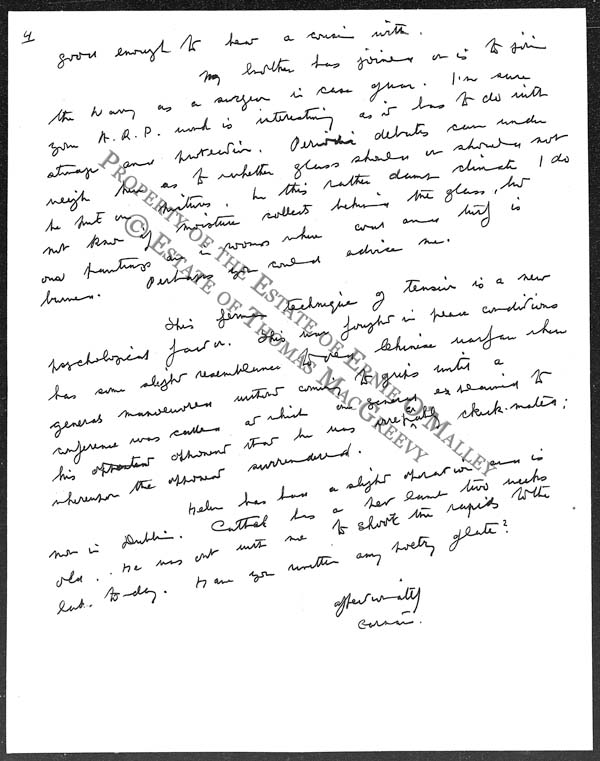 4
good enough to hear a cousin with.
My brother has joined or is to join
the Navy as a surgeon in case of war. I'm sure
your A.R.P. work is interesting as it has to do with
storage and protection. Periodic debates can under
weigh here as to whether glass should or should not
be put on pictures. In this rather damp climate I do
not know if moisture collects behind the glass, but
one's paintings are in rooms where coal and turf is
burned. Perhaps you could advise me.
This German technique of tension is a new
psychological factor. This war fought in peace conditions
has some slight resemblance to old Chinese warfare when
generals manoeuvred without coming to grips until a
conference was called at which one general explained to
his opponent that he was check-mated;
whereupon the opponent surrendered.
Helen has had a slight operation and is
now in Dublin. Cathal has a new lamb two weeks
old. He was out with me to shoot the rapids to the
lake to-day. Have you written any poetry of late?
affectionately
Earnán.
PROPERTY OF THE ESTATE OF ERNIE O'MALLEY
© ESTATE OF THOMAS MACGREEVY